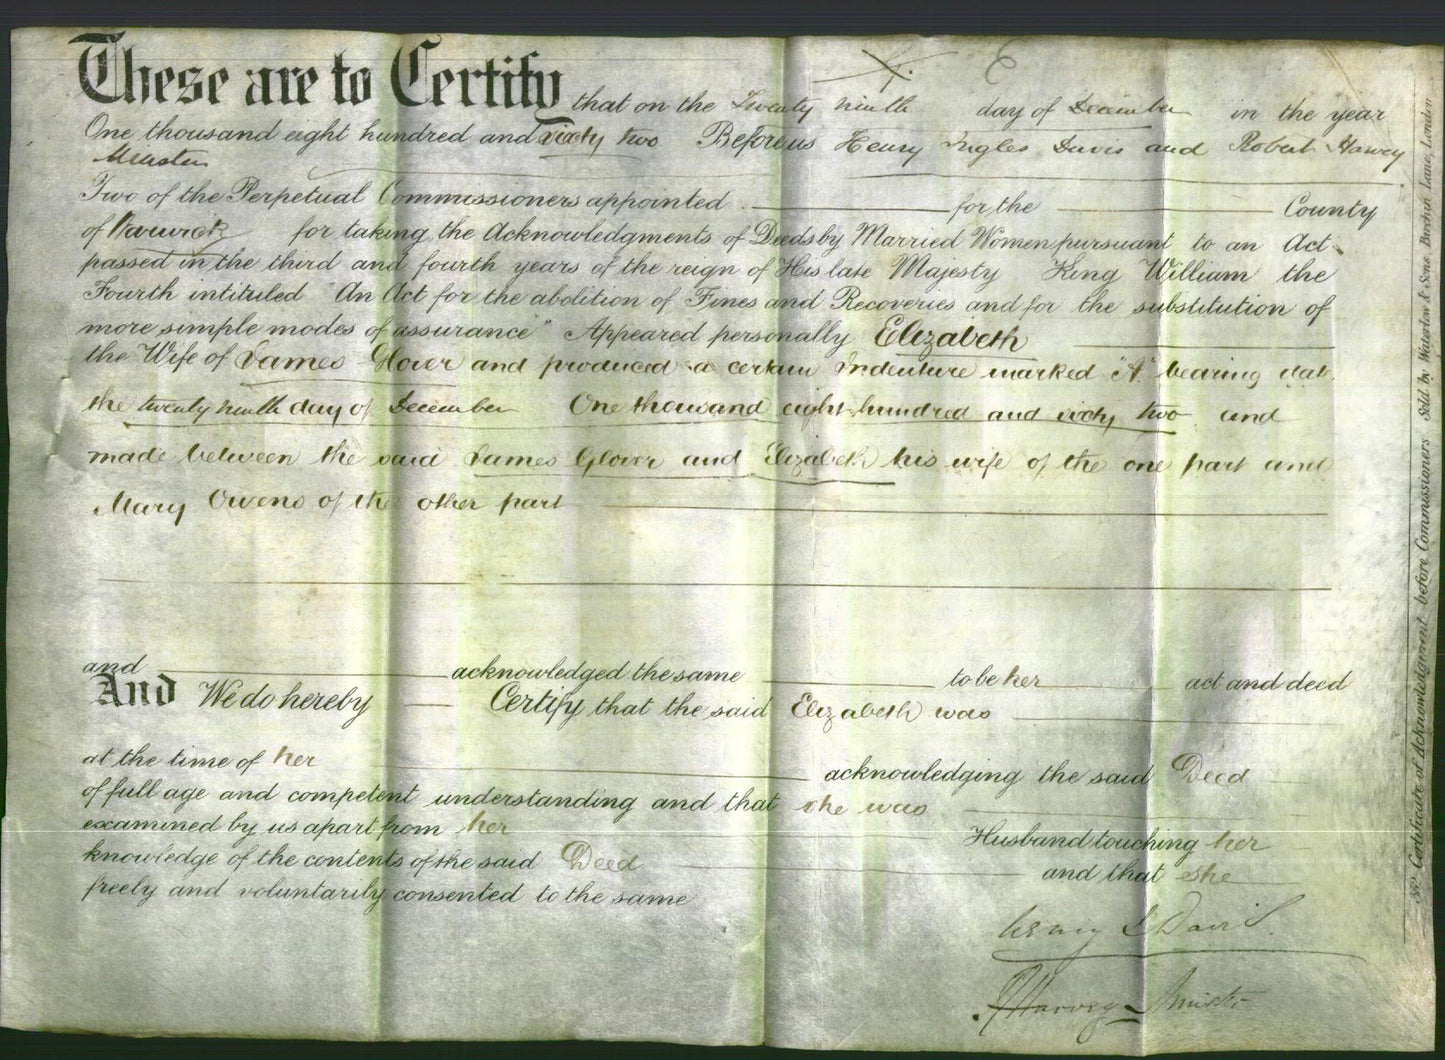 These are to Certify that on the Twenty ninth day of December in the year
One thousand eight hundred and sixty two Before us Henry Ingles Davis and Robert Harvey
Minster
Two of the Perpetual Commissioners appointed for the County
of Warwick for taking the Acknowledgments of Deeds by Married Women pursuant to an Act
passed in the third and fourth years of the reign of His late Majesty King William the
Fourth intituled "An Act for the abolition of Fines and Recoveries and for the substitution of
more simple modes of assurance" Appeared personally Elizabeth
the Wife of James Glover and produced a certain Indenture marked "A" bearing date
the twenty ninth day of December One thousand eight hundred and sixty two and
made between the said James Glover and Elizabeth his wife of the one part and
Mary Owens of the other part
and acknowledged the same to be her act and deed
And We do hereby Certify that the said Elizabeth was
at the time of her acknowledging the said Deed
of full age and competent understanding and that she was
examined by us apart from her Husband touching her
knowledge of the contents of the said Deed and that she
freely and voluntarily consented to the same
Henry I Davis
R Harvey Minster
Certificate of Acknowledgment before Commissioners Sold by Waterlow & Sons Birchin Lane, London